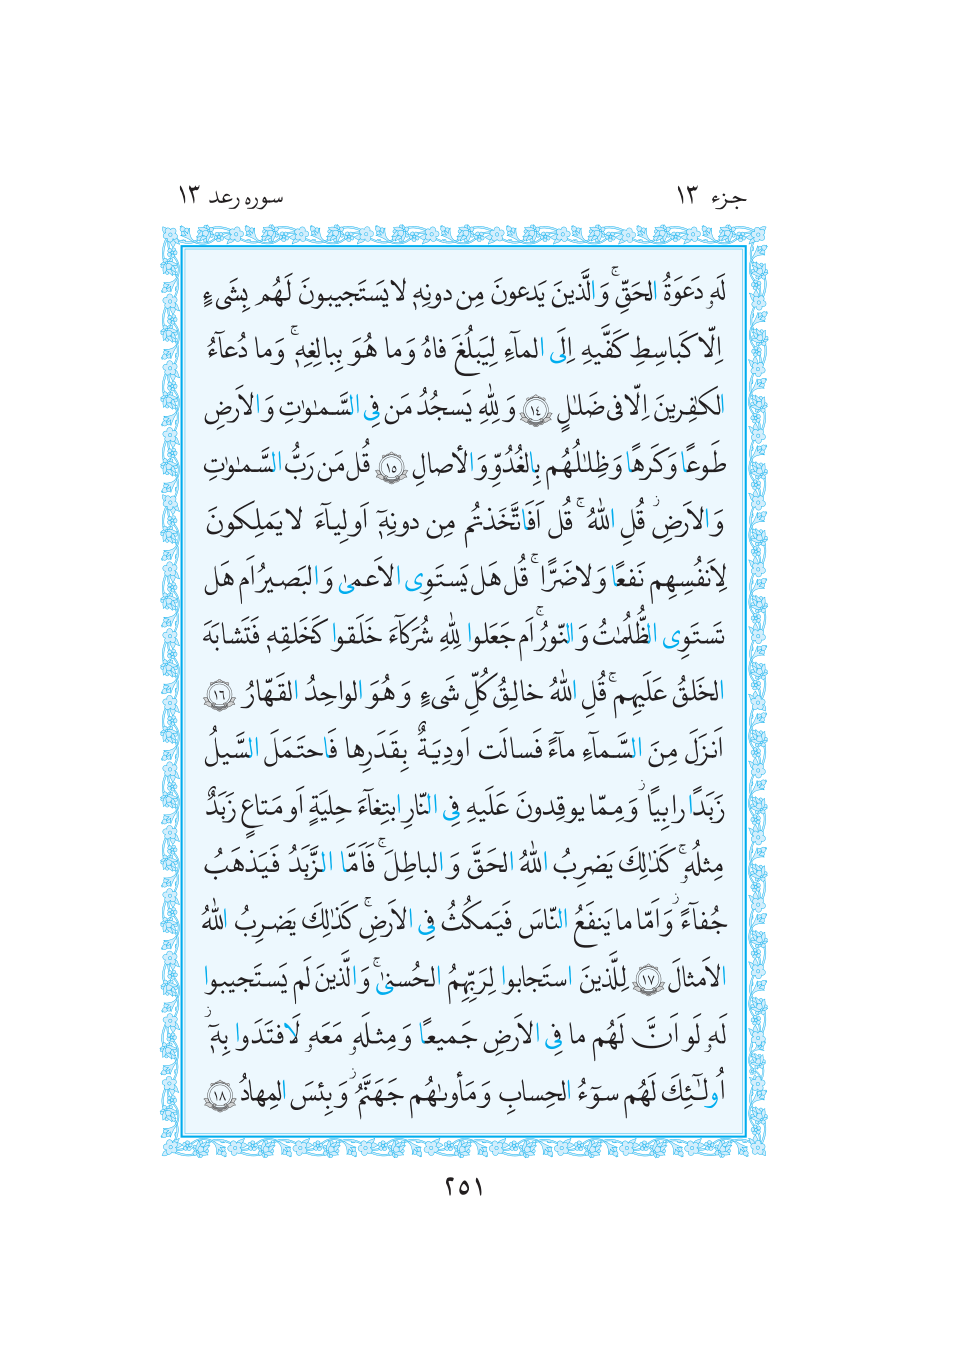 جزء ١٣
سوره رعد ١٣
لَهۥ دَعوَةُ الحَقِّۚ وَالَّذينَ يَدعونَ مِن دونِهٖ لا يَستَجيبونَ لَهُم بِشَىءٍ
اِلّا كَباسِطِ كَفَّيهِ اِلَى الماۤءِ لِيَبلُغَ فاهُ وَما هُوَ بِبالِغِهٖۚ وَما دُعاۤءُ
الكٰفِرينَ اِلّا فى ضَلٰلٍ ١٤ وَ لِلّٰهِ يَسجُدُ مَن فِى السَّمٰوٰتِ وَ الاَرضِ
طَوعًا وَكَرهًا وَظِلٰلُهُم بِالغُدُوِّ وَ الأصالِ ١٥ قُل مَن رَبُّ السَّمٰوٰتِ
وَ الاَرضِۗ قُلِ اللّٰهُۚ قُل اَفَاتَّخَذتُم مِن دونِهٖۤ اَولِياۤءَ لا يَملِكونَ
لِاَنفُسِهِم نَفعًا وَ لا ضَرًّاۚ قُل هَل يَستَوِى الاَعمىٰ وَ البَصيرُ اَم هَل
تَستَوِى الظُّلُمٰتُ وَ النّورُۚ اَم جَعَلوا لِلّٰهِ شُرَكاۤءَ خَلَقوا كَخَلقِهٖ فَتَشابَهَ
الخَلقُ عَلَيهِمۚ قُلِ اللّٰهُ خالِقُ كُلِّ شَىءٍ وَ هُوَ الواحِدُ القَهّارُ ١٦
اَنزَلَ مِنَ السَّماۤءِ ماۤءً فَسالَت اَودِيَةٌ بِقَدَرِها فَاحتَمَلَ السَّيلُ
زَبَدًا رابِيًاۗ وَ مِمّا يوقِدونَ عَلَيهِ فِى النّارِ ابتِغاۤءَ حِليَةٍ اَو مَتاعٍ زَبَدٌ
مِثلُهۥۚ كَذٰلِكَ يَضرِبُ اللّٰهُ الحَقَّ وَ الباطِلَۚ فَاَمَّا الزَّبَدُ فَيَذهَبُ
جُفاۤءًۗ وَ اَمّا ما يَنفَعُ النّاسَ فَيَمكُثُ فِى الاَرضِۚ كَذٰلِكَ يَضرِبُ اللّٰهُ
الاَمثالَ ١٧ لِلَّذينَ استَجابوا لِرَبِّهِمُ الحُسنىٰۚ وَ الَّذينَ لَم يَستَجيبوا
لَهۥ لَو اَنَّ لَهُم ما فِى الاَرضِ جَميعًا وَ مِثلَهۥ مَعَهۥ لَافتَدَوا بِهٖۤۗ
اُولٰۤئِكَ لَهُم سوۤءُ الحِسابِ وَ مَأوىٰهُم جَهَنَّمُۗ وَ بِئسَ المِهادُ ١٨
٢٥١